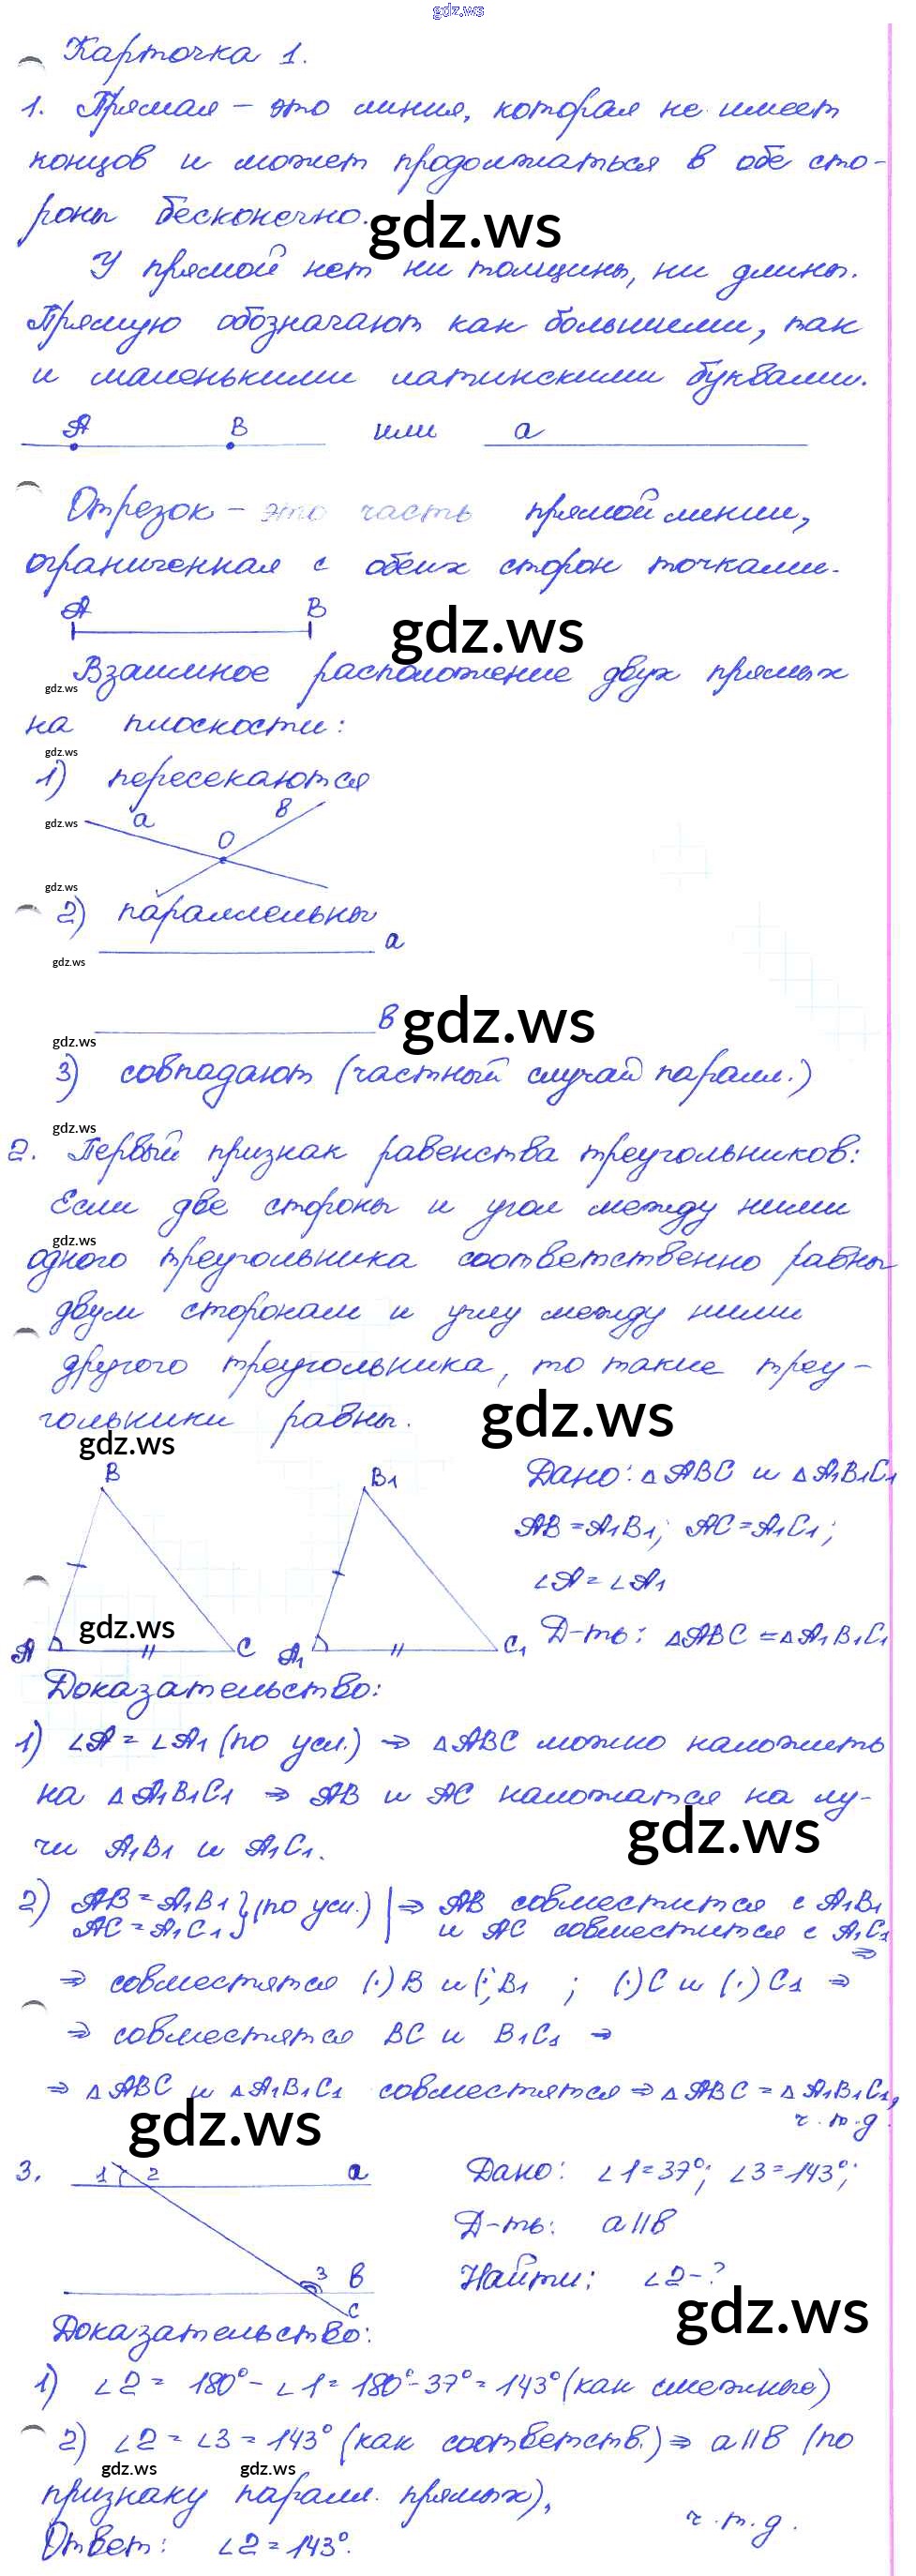 gdz.ws
Карточка 1.
1. Прямая – это линия, которая не имеет
концов и может продолжаться в обе сто-
роны бесконечно.
gdz.ws
У прямой нет ни толщины, ни длины.
Прямую обозначают как большими, так
и маленькими латинскими буквами.
A B или a
Отрезок – это часть прямой линии,
ограниченная с обеих сторон точками.
A B
gdz.ws
Взаимное расположение двух прямых
gdz.ws
на плоскости:
gdz.ws
1) пересекаются
gdz.ws
a O в
gdz.ws
2) параллельны
a
gdz.ws
в
gdz.ws
gdz.ws
3) совпадают (частный случай паралл.)
gdz.ws
2. Первый признак равенства треугольников:
Если две стороны и угол между ними
gdz.ws
одного треугольника соответственно равны
двум сторонам и углу между ними
другого треугольника, то такие треу-
гольники равны.
gdz.ws
gdz.ws
B B1 Дано: △ABC и △A1B1C1
AB=A1B1; AC=A1C1;
∠A=∠A1
gdz.ws
A C A1 C1 Д-ть: △ABC=△A1B1C1
Доказательство:
1) ∠A=∠A1 (по усл.) ⇒ △ABC можно наложить
на △A1B1C1 ⇒ AB и AC наложатся на лу-
чи A1B1 и A1C1.
gdz.ws
2) AB=A1B1 } (по усл.) | ⇒ AB совместится с A1B1
AC=A1C1 } и AC совместится с A1C1 ⇒
⇒ совместятся (·)B и (·)B1 ; (·)C и (·)C1 ⇒
⇒ совместятся BC и B1C1 ⇒
⇒ △ABC и △A1B1C1 совместятся ⇒ △ABC=△A1B1C1,
ч.т.д.
gdz.ws
3. 1 2 a Дано: ∠1=37°; ∠3=143°;
Д-ть: a||в
3 в Найти: ∠2-?
c
gdz.ws
Доказательство:
1) ∠2 = 180°-∠1=180°-37°=143° (как смежные)
2) ∠2=∠3=143° (как соответств.) ⇒ a||в (по
gdz.ws gdz.ws
признаку паралл. прямых),
ч.т.д.
Ответ: ∠2=143°.